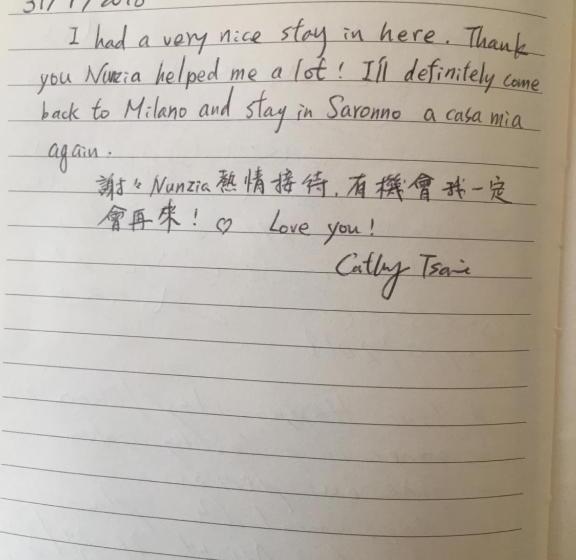 31/1/2018
I had a very nice stay in here. Thank
you Nunzia helped me a lot! I'll definitely come
back to Milano and stay in Saronno a casa mia
again.
謝々 Nunzia 熱情接待, 有機會我一定
會再來! ♡ Love you!
Cathy Tsai